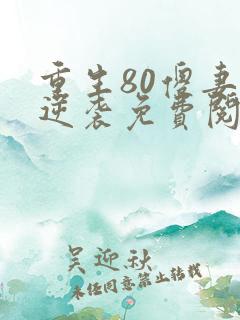 重生80悍妻
逆袭免費閱
吴迎秋
未经同意禁止转载